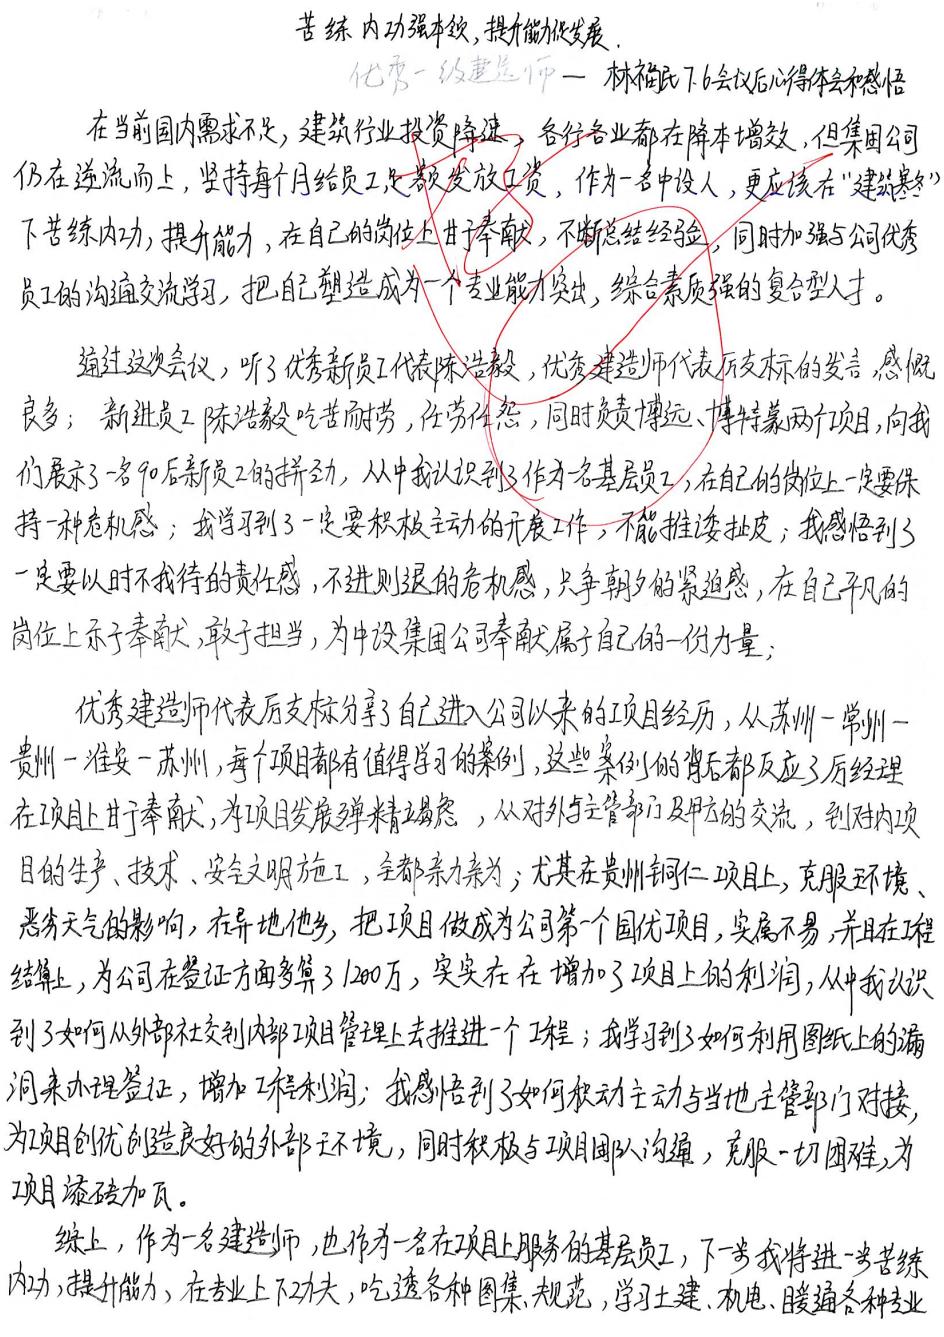 苦练内功强本领,提升能力促发展.
优秀一级建造师 — 林福民7.6会议后心得体会和感悟
在当前国内需求不足,建筑行业投资降速,各行各业都在降本增效,但集团公司
仍在逆流而上,坚持每个月给员工足额发放工资,作为一名中设人,更应该在“建筑寒冬”
下苦练内功,提升能力,在自己的岗位上甘于奉献,不断总结经验,同时加强与公司优秀
员工的沟通交流学习,把自己塑造成为一个专业能力突出,综合素质强的复合型人才。
通过这次会议,听了优秀新员工代表陈浩毅,优秀建造师代表厉支标的发言,感慨
良多;新进员工陈浩毅吃苦而耐劳,任劳任怨,同时负责博远、博特蒙两个项目,向我
们展示了一名90后新员工的拼劲,从中我认识到了作为一名基层员工,在自己的岗位上一定要保
持一种危机感;我学习到了一定要积极主动的开展工作,不能推诿扯皮;我感悟到了
一定要以时不我待的责任感,不进则退的危机感,只争朝夕的紧迫感,在自己平凡的
岗位上乐于奉献,敢于担当,为中设集团公司奉献属于自己的一份力量;
优秀建造师代表厉支标分享了自己进入公司以来的项目经历,从苏州一常州一
贵州一淮安一苏州,每个项目都有值得学习的案例,这些案例的背后都反应了厉经理
在项目上甘于奉献,为项目发展殚精竭虑,从对外与主管部门及甲方的交流,到对内项
目的生产、技术、安全文明施工,全都亲力亲为;尤其在贵州铜仁项目上,克服环境、
恶劣天气的影响,在异地他乡,把项目做成为公司第一个国优项目,实属不易,并且在工程
结算上,为公司在签证方面多算了1200万,实实在在增加了项目上的利润,从中我认识
到了如何从外部社交到内部项目管理上去推进一个工程;我学习到了如何利用图纸上的漏
洞来办理签证,增加工程利润;我感悟到了如何积极主动与当地主管部门对接,
为项目创优创造良好的外部环境,同时积极与项目团队沟通,克服一切困难,为
项目添砖加瓦。
综上,作为一名建造师,也作为一名在项目上服务的基层员工,下一步我将进一步苦练
内功,提升能力,在专业上下功夫,吃透各种图集、规范,学习土建、机电、暖通各种专业